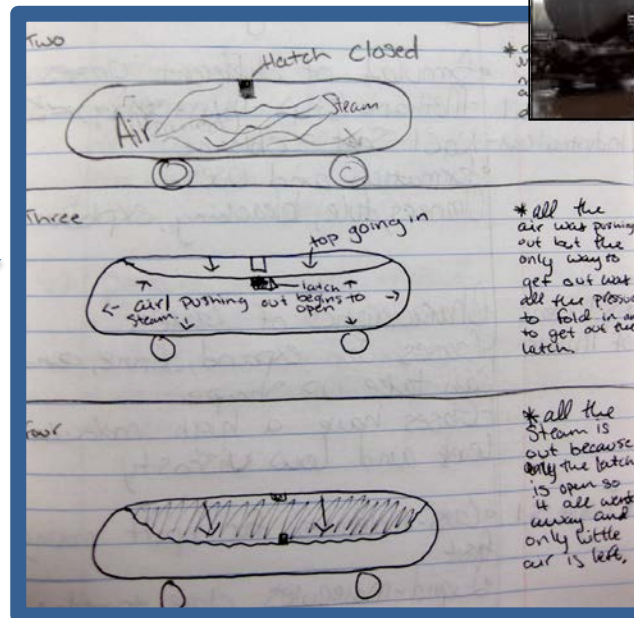 Two
Hatch Closed
Air
Steam
Three
top going in
latch
air/ pushing out begins to
Steam open
*all the
air was pushing
out but the
only way to
get out was
all the pressure
to fold in
to get out the
latch.
four
*all the
Steam is
out because
only the latch
is open so
it all went
away and
only little
air is left.